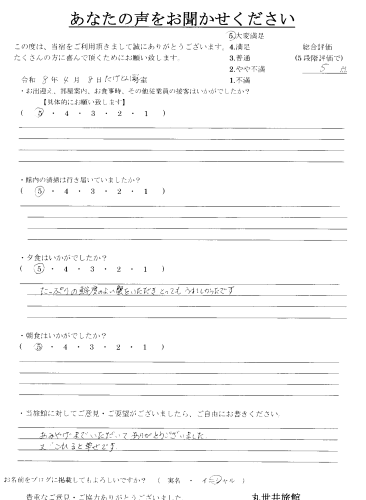 あなたの声をお聞かせください
この度は、当宿をご利用頂きまして誠にありがとうございます。
たくさんの方に喜んで頂くためにお願い致します。
5.大変満足
4.満足
3.普通
2.やや不満
1.不満
総合評価
(5段階評価で)
5 点
令和 8年 4月 8日 室
・お出迎え、部屋案内、お食事時、その他従業員の接客はいかがでしたか?
【具体的にお願い致します】
( 5 ・ 4 ・ 3 ・ 2 ・ 1 )
・館内の清掃は行き届いていましたか?
( 5 ・ 4 ・ 3 ・ 2 ・ 1 )
・夕食はいかがでしたか?
( 5 ・ 4 ・ 3 ・ 2 ・ 1 )
たっぷりの鮮度のよい蟹をいただきとってもうれしかったです
・朝食はいかがでしたか?
( 5 ・ 4 ・ 3 ・ 2 ・ 1 )
・当旅館に対してご意見・ご要望がございましたら、ご自由にお書きください
おみやげまでいただいてありがとうございました
これると幸せです
お名前をブログに掲載してもよろしいですか? ( 実名 ・ イニシャル )
貴重なご意見・ご協力ありがとうございました
丸世井旅館